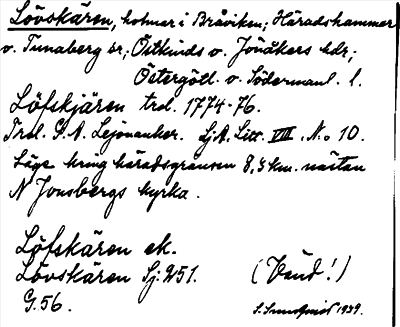 Lövskären, holmar i Bråviken; Häradshammar
o. Tunaberg sr; Östkinds o. Jönåkers hdr;
Östergötl. o. Södermanl. l.
Löfskjären trol. 1774-76.
Trol. G. A. Lejonanker. Sj.A. Litt. VIII. N:o 10.
Läge kring häradsgränsen 8,5 km. nästan
N Jonsbergs kyrka.
Löfskären ek.
Lövskären Sj: 251. (Vänd!)
G.56. S. Sundqvist 1939.